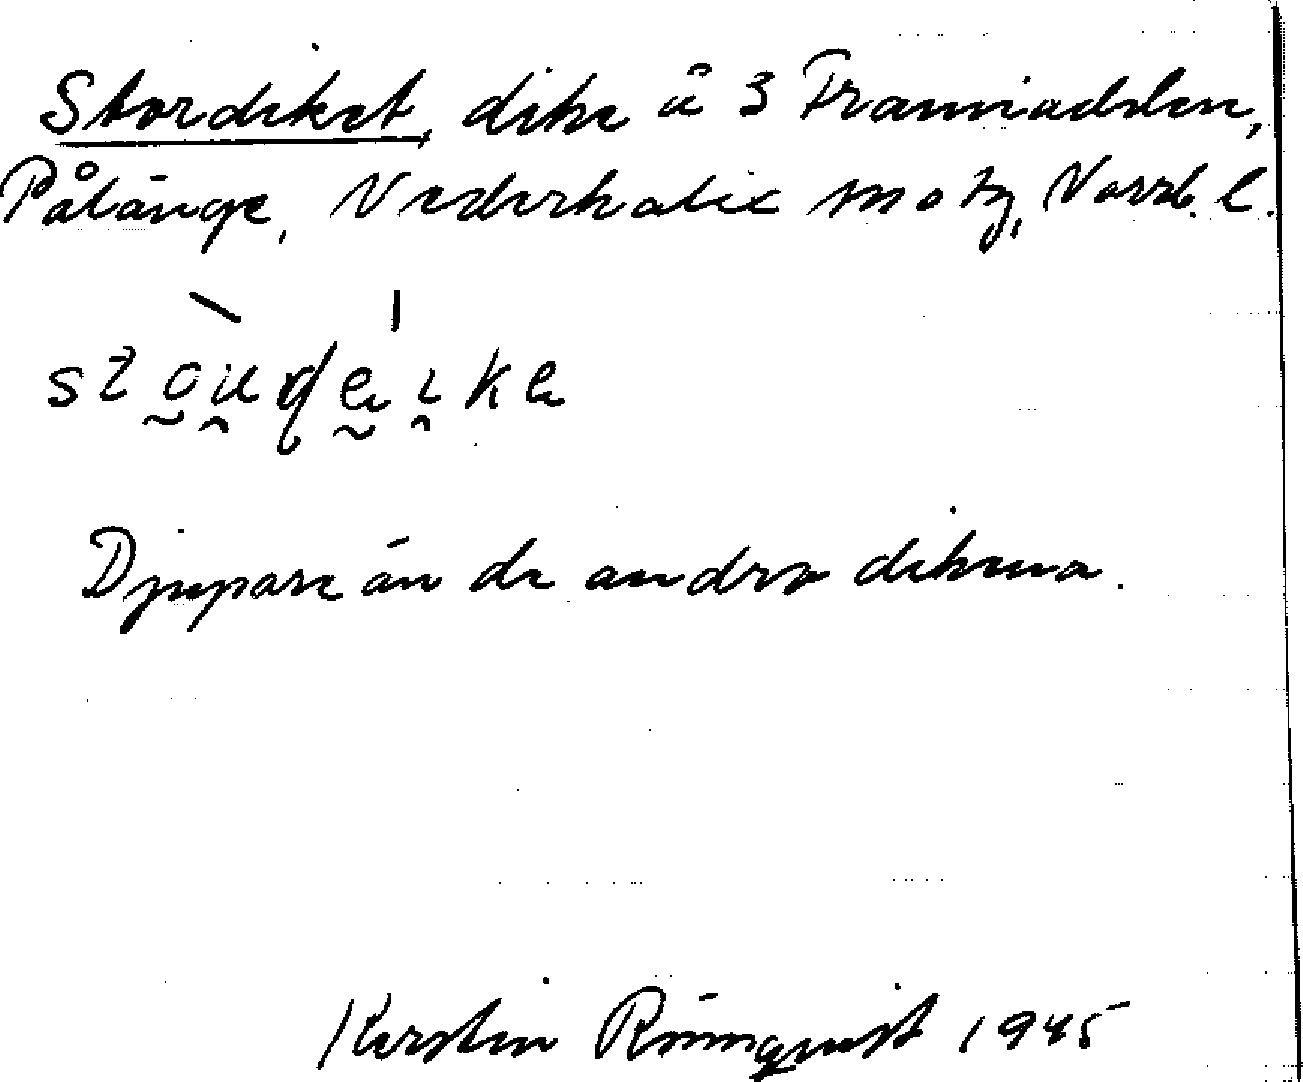 Stordiket, dike å 3 Framiadelen,
Pålänge, Nederkalix sn o tg, Norrb. l.
Djupare än de andra dikena.
Kerstin Rönnqvist 1945